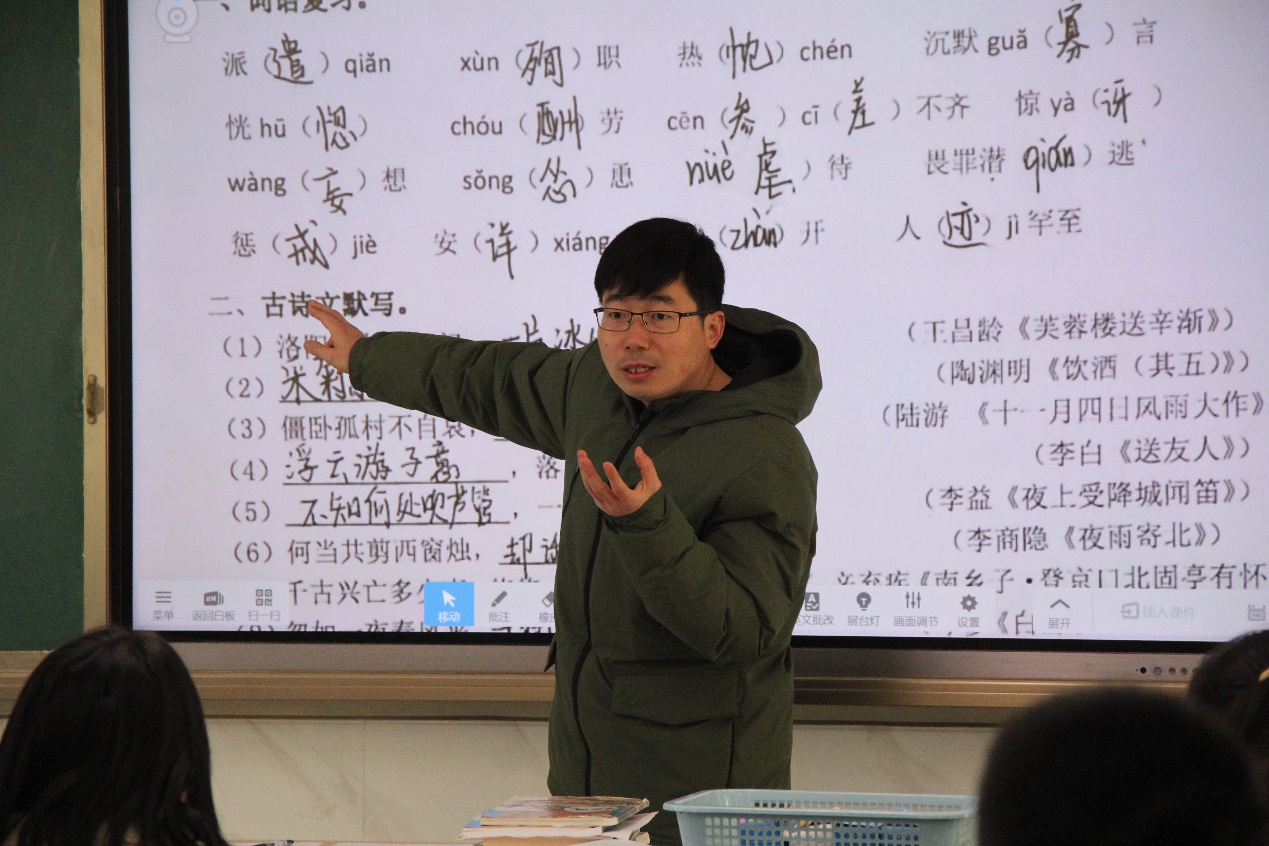 一、词语复习。
派（遣）qiǎn xùn（殉）职 热（忱）chén 沉默 guǎ（寡）言
恍 hū（惚） chóu（酬）劳 cēn（参）cī（差）不齐 惊 yà（讶）
wàng（妄）想 sǒng（怂）恿 nüè 虐）待 畏罪潜 qián）逃
惩（戒）jiè 安（详）xiáng （zhàn）开 人（迹）jì 罕至
二、古诗文默写。
（1）洛 一片冰 （王昌龄《芙蓉楼送辛渐》）
（2） （陶渊明《饮酒（其五）》）
（3）僵卧孤村不自哀， （陆游 《十一月四日风雨大作》
（4）浮云游子意，落 （李白《送友人》）
（5）不知何处吹芦管， （李益《夜上受降城闻笛》）
（6）何当共剪西窗烛，却 （李商隐《夜雨寄北》）
千古兴亡多少 辛弃疾《南乡子·登京口北固亭有怀
忽如一夜春风来 《白
菜单 返回白板 扫一扫 移动 批注 文批改 展台灯 画面调节 设置 展开 插入课件